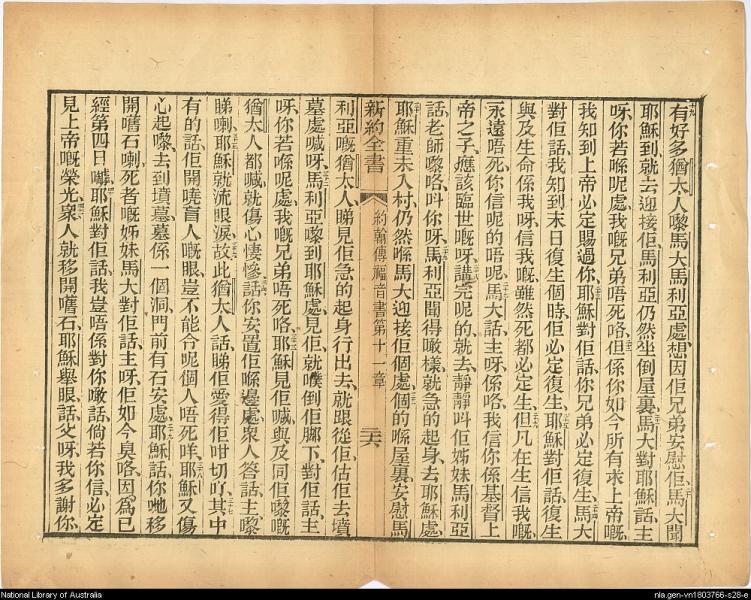 有好多猶太人嚟馬大馬利亞處想因佢兄弟安慰佢馬大聞
耶穌到就去迎接佢馬利亞仍然坐倒屋裏馬大對耶穌話主
呀你若喺呢處我嘅兄弟唔死咯但係你如今所有求上帝嘅
我知到上帝必定賜過你耶穌對佢話你兄弟必定復生馬大
對佢話我知到末日復生個時佢必定復生耶穌對佢話復生
與及生命係我呀信我嘅雖然死都必定生但凡在生信我嘅
永遠唔死你信呢的唔呢馬大話主呀係咯我信你係基督上
帝之子應該臨世嘅呀講完呢的就去靜靜叫佢姊妹馬利亞
話老師嚟咯叫你呀馬利亞聞得噉樣就急的起身去耶穌處
耶穌重未入村仍然喺馬大迎接佢個處個的喺屋裏安慰馬
新約全書 約翰傳福音書第十一章
利亞嘅猶太人睇見佢急的起身行出去就跟從佢估佢去墳
墓處喊呀馬利亞嚟到耶穌處見佢就噗倒佢腳下對佢話主
呀你若喺呢處我嘅兄弟唔死咯耶穌見佢喊與及同佢嚟嘅
猶太人都喊就傷心悽慘話你安置佢喺邊處衆人答話主嚟
睇喇耶穌就流眼淚故此猶太人話睇佢愛得佢咁切吖其中
有的話佢開曉盲人嘅眼豈不能令呢個人唔死咩耶穌又傷
心起嚟去到墳墓墓係一個洞門前有石安處耶穌話你哋移
開嚿石喇死者嘅姊妹馬大對佢話主呀佢如今臭咯因爲已
經第四日囉耶穌對佢話我豈唔係對你噉話倘若你信必定
見上帝嘅榮光衆人就移開嚿石耶穌舉眼話父呀我多謝你
National Library of Australia
nla.gen-vn1803766-s28-e